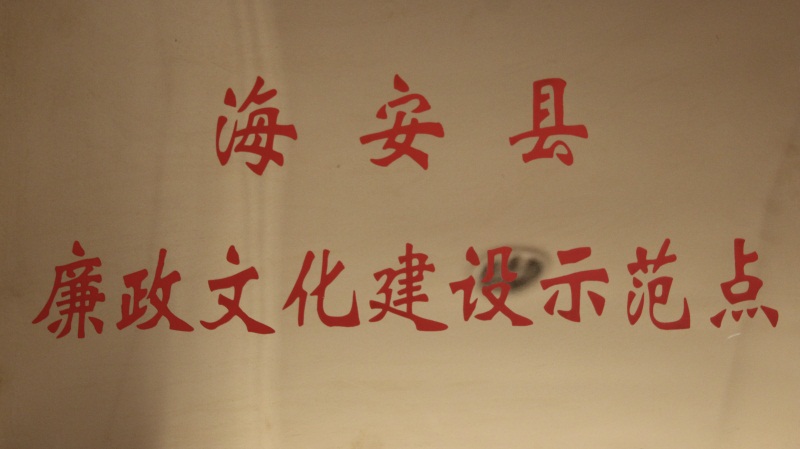 海安县
廉政文化建设示范点